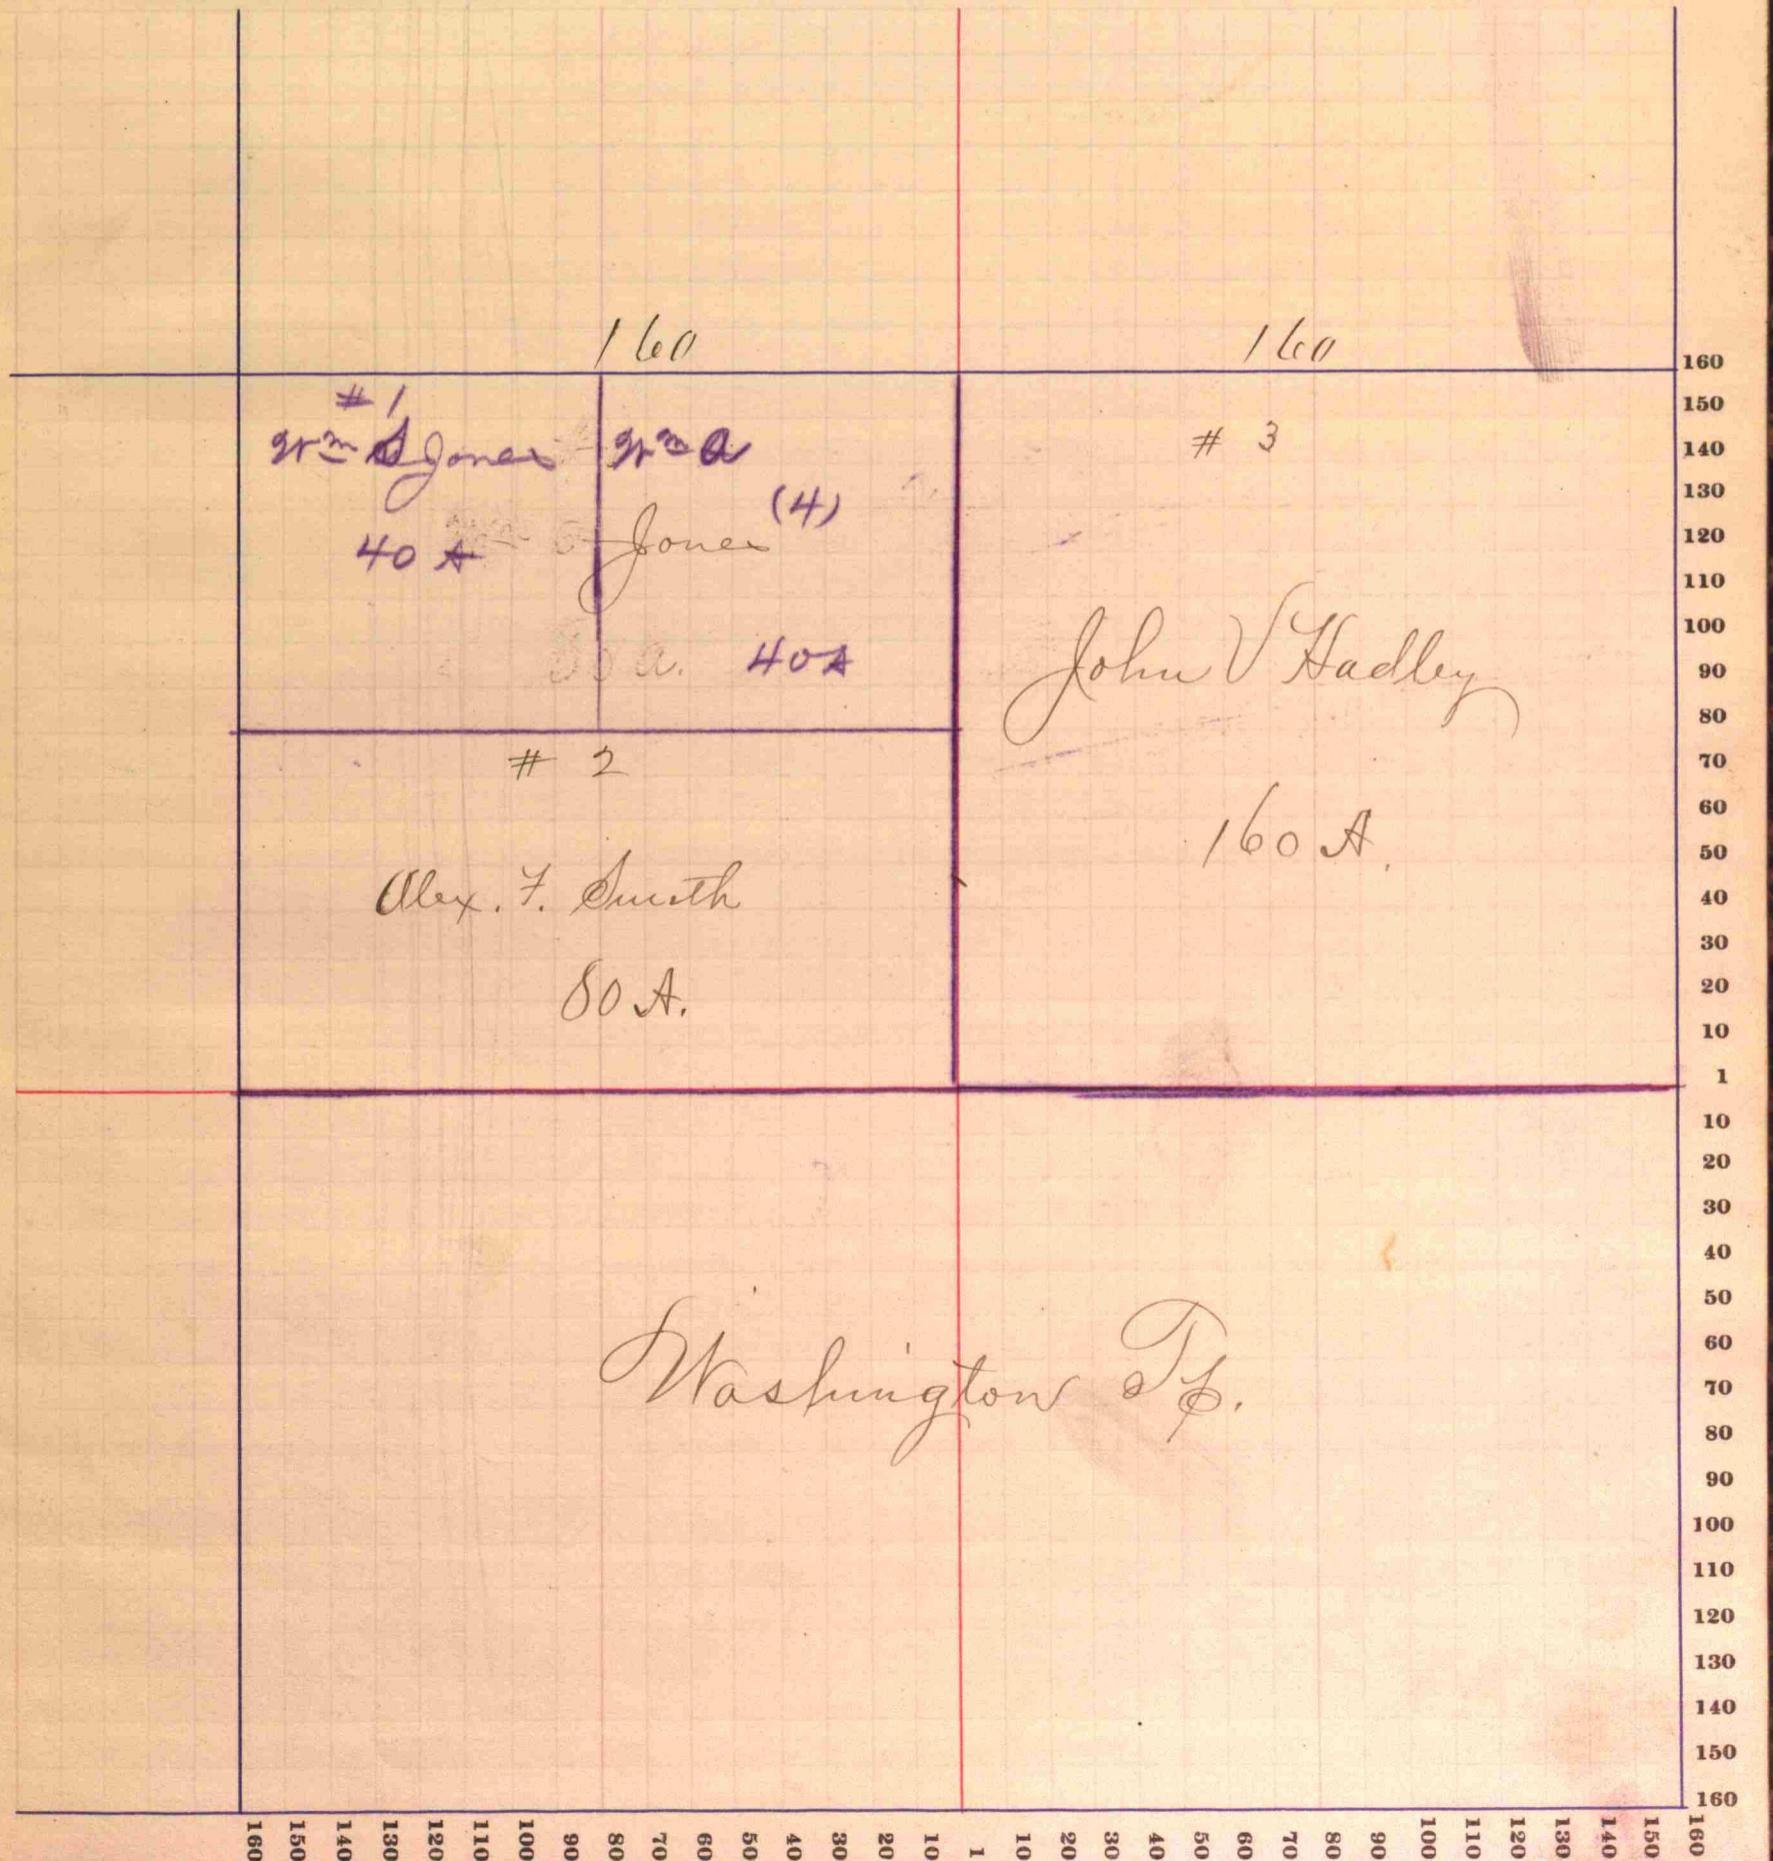 160 160
# 1
Wm S Jones
40 A
Wm A
(4)
Jones
80 a. 40 A
# 2
Alex. F. Smith
80 A.
# 3
John V Hadley
160 A.
Washington Tp.
160
150
140
130
120
110
100
90
80
70
60
50
40
30
20
10
1
10
20
30
40
50
60
70
80
90
100
110
120
130
140
150
160
160 150 140 130 120 110 100 90 80 70 60 50 40 30 20 10 1 10 20 30 40 50 60 70 80 90 100 110 120 130 140 150 160